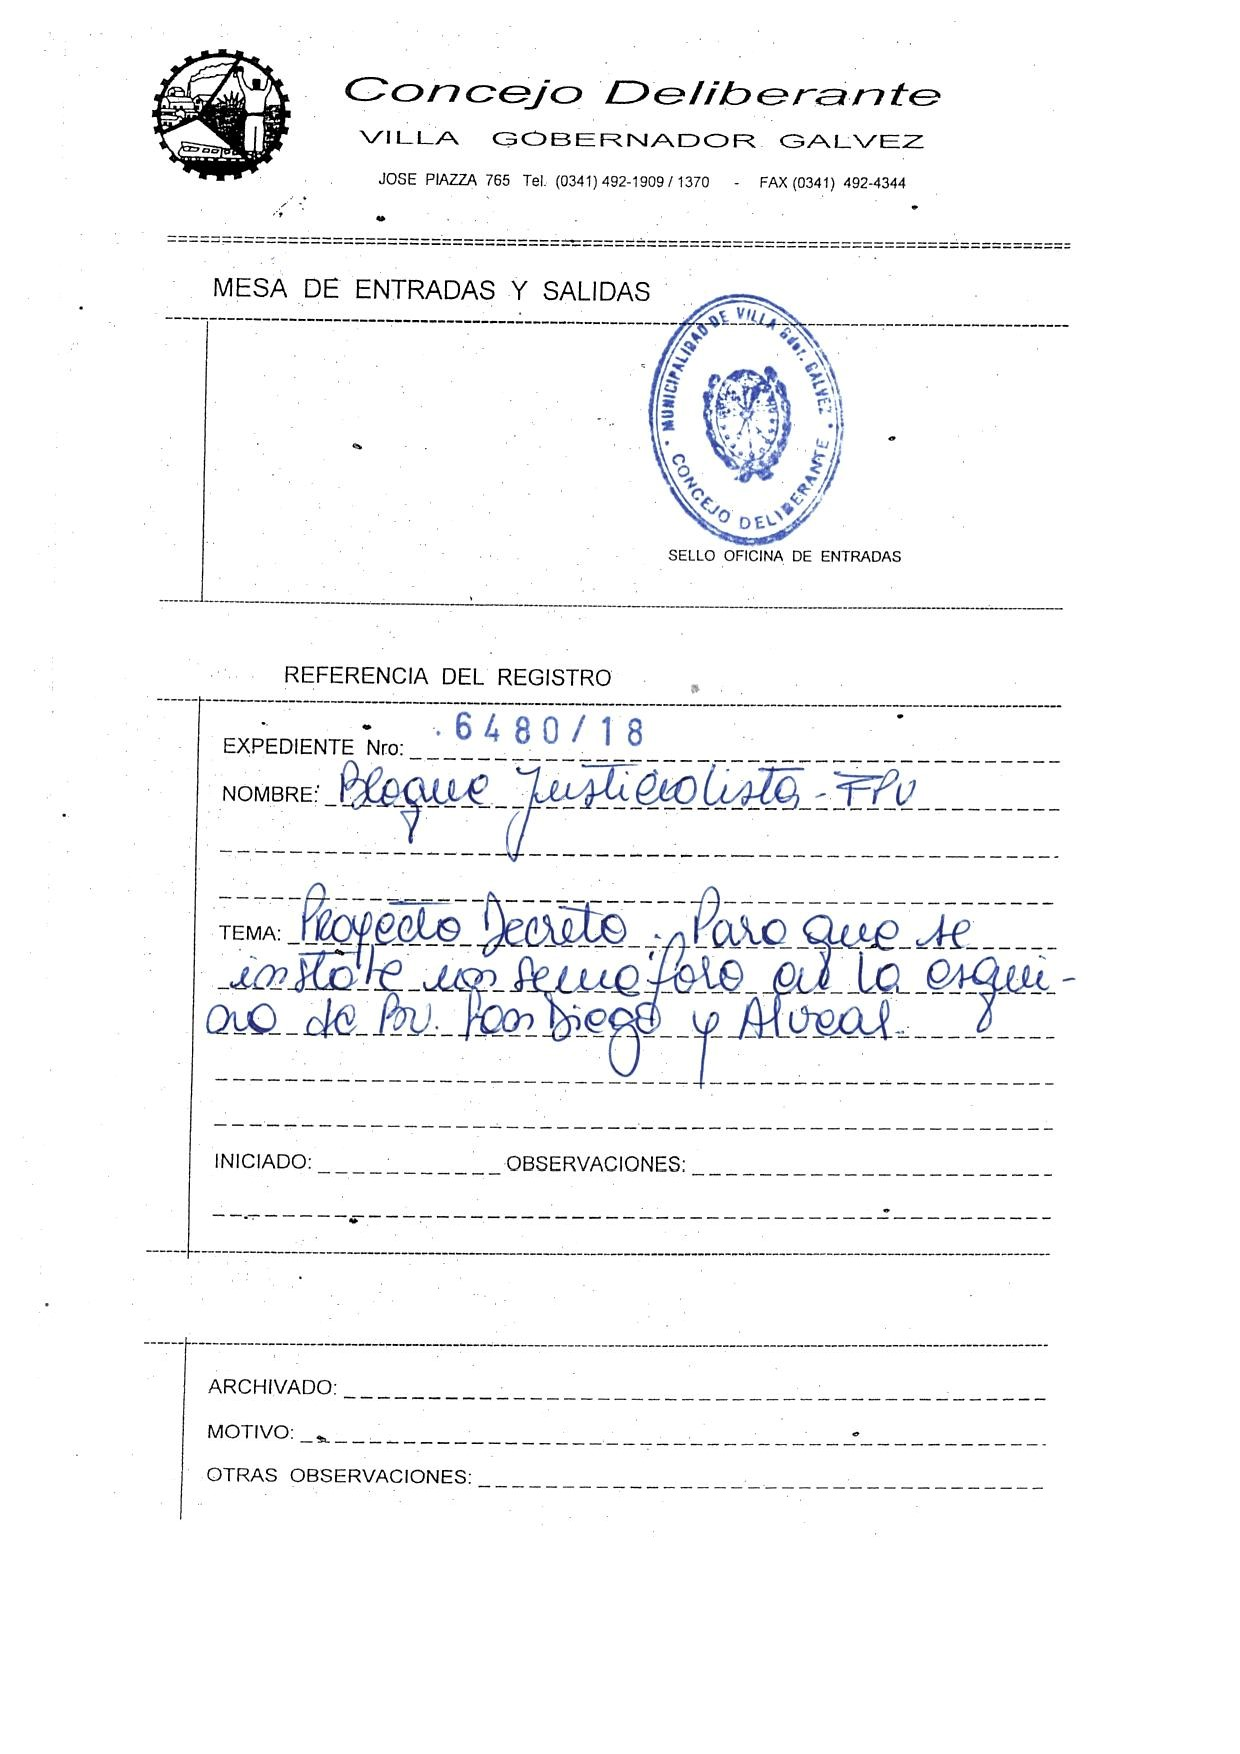 Concejo Deliberante
VILLA GOBERNADOR GALVEZ
JOSE PIAZZA 765 Tel. (0341) 492-1909 / 1370 - FAX (0341) 492-4344
MESA DE ENTRADAS Y SALIDAS
MUNICIPALIDAD DE VILLA Gdor. GALVEZ
CONCEJO DELIBERANTE
SELLO OFICINA DE ENTRADAS
REFERENCIA DEL REGISTRO
EXPEDIENTE Nro: 6480/18
NOMBRE: Bloque Justicialista - FPV
TEMA: Proyecto Decreto. Para que se
instale un semáforo en la esqui-
na de Bv. San Diego y Alvear.
INICIADO: OBSERVACIONES:
ARCHIVADO:
MOTIVO:
OTRAS OBSERVACIONES: